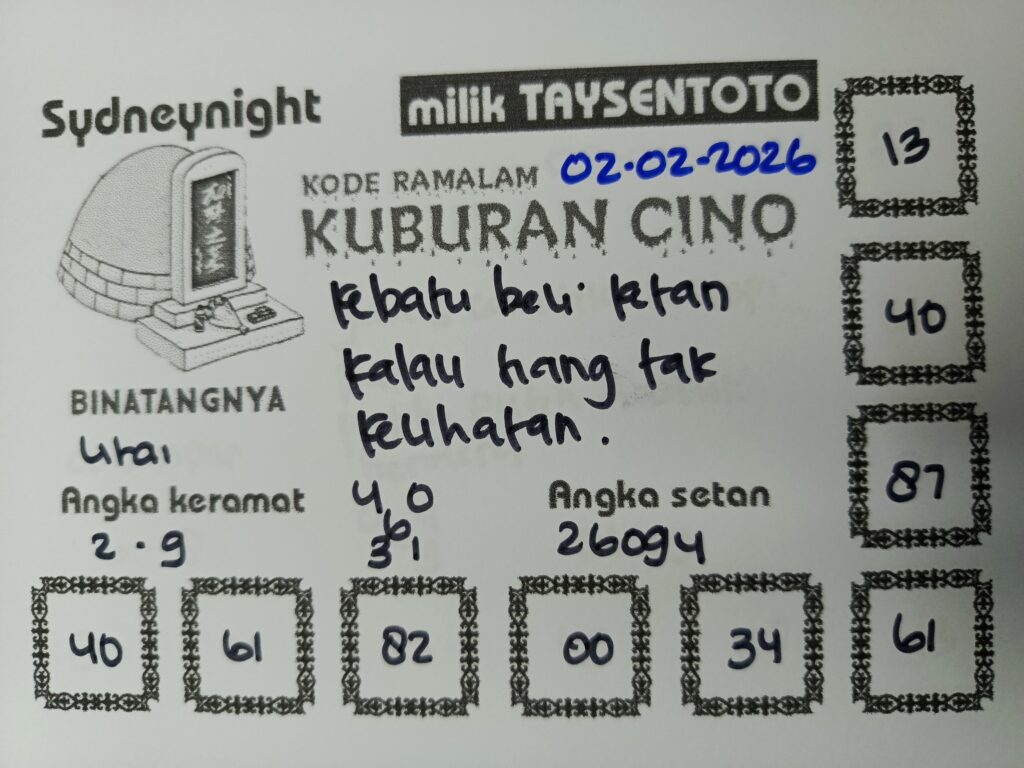 Sydneynight
milik TAYSENTOTO
KODE RAMALAM 02.02-2026
KUBURAN CINO
Kebatu beli Ketan
Kalau hang tak
Kelihatan.
BINATANGNYA
Ular
Angka keramat
2.9
4 0
6
3 1
Angka setan
26094
13
40
87
61
40 61 82 00 34